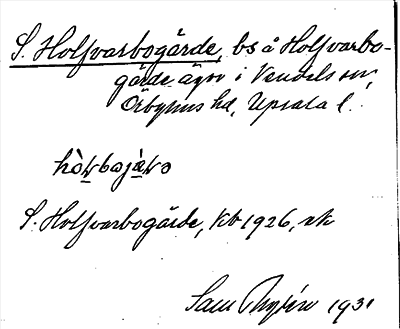 S. Holfvarbogärde, bs å Holfvarbo-
gärde ägor i Vendels sn,
Örbyhus hd, Upsala l.
S. Holfvarbogärde, kb 1926, ek
Sam Nyrén 1931